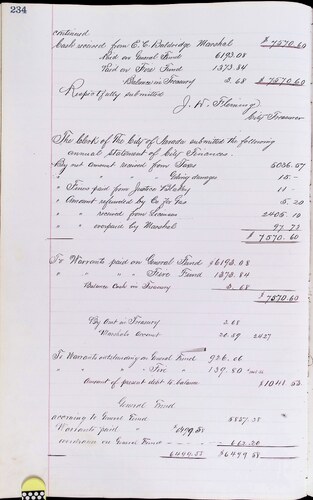 234
continued
Cash received from E. C. Baldridge Marshal $7570.60
Paid on General Fund 6193.08
Paid on Fire Fund 1373.84
Balance in Treasury 3.68 $7570.60
Respectfully submitted
J. W. Fleming
City Treasurer
The Clerk of The City of Nevada submitted the following
annual statement of City Finances.
By amt Amount received from Taxes 5036.57
" " " " Gdeing damages 15.–
" Fines paid from Justice Blakey 11 –
" Amount refunded by Co for Gas 5.20
" " received from Licenses 2405.10
" " overpaid by Marshal 97.73
$7570.60
To Warrants paid on General Fund $6193.08
" " " " Fire Fund 1373.84
Balance Cash in Treasury 3.68
$7570.60
By Amt in Treasury 3.68
20.59 2427
To Warrants outstanding on General Fund 926.06
" " " Fire " 139.80
Amount of present debt to balance $1041.53
General Fund
according to General Fund 5837.38
Warrants paid "
overdrawn on General Fund - - - -